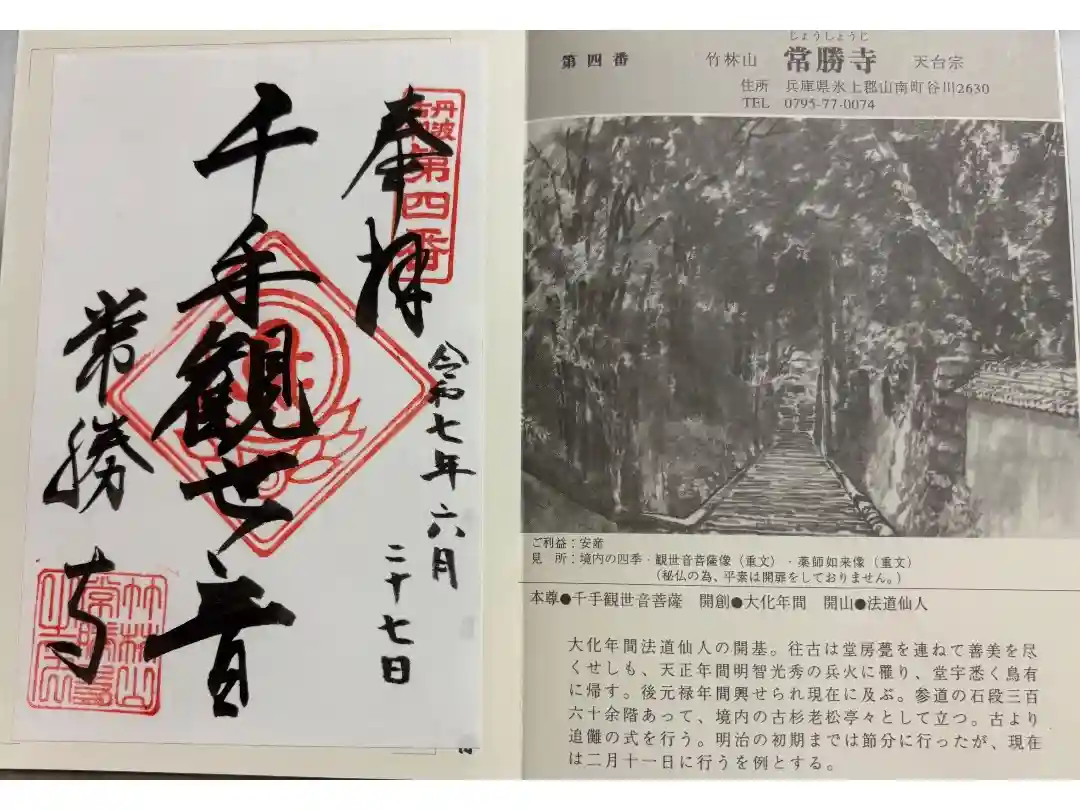 丹波
第四番
奉拝
令和七年六月
二十七日
千手観世音
常勝寺
竹林山
常勝寺
第四番
竹林山
じょうしょうじ
常勝寺
天台宗
住所 兵庫県氷上郡山南町谷川2630
TEL 0795-77-0074
ご利益：安産
見 所：境内の四季・観世音菩薩像（重文）・薬師如来像（重文）
（秘仏の為、平素は開扉をしておりません。）
本尊●千手観世音菩薩 開創●大化年間 開山●法道仙人
大化年間法道仙人の開基。往古は堂房甍を連ねて善美を尽
くせしも、天正年間明智光秀の兵火に罹り、堂宇悉く烏有
に帰す。後元禄年間興せられ現在に及ぶ。参道の石段三百
六十余階あって、境内の古杉老松亭々として立つ。古より
追儺の式を行う。明治の初期までは節分に行ったが、現在
は二月十一日に行うを例とする。